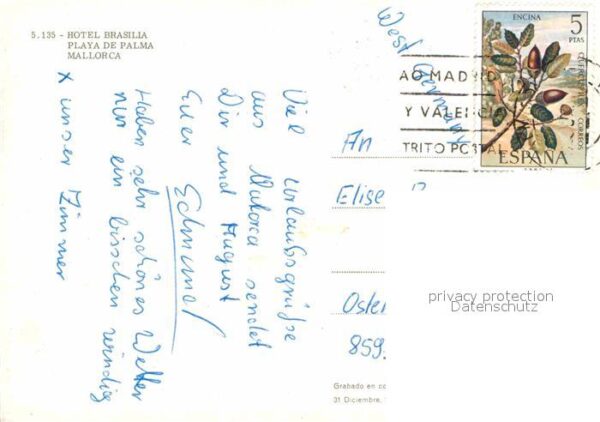 5.135 - HOTEL BRASILIA
PLAYA DE PALMA
MALLORCA
Viel Urlaubsgrüße
aus Malorca sendet
Dir und August
Euer Schmunsl
Haben sehr schönes Wetter
nur ein bisschen windig
x unser Zimmer
West Germany
ENCINA
5
PTAS
CORREOS
ESPAÑA
AO MADRID
Y VALENCI
TRITO POSTAL
An
Elise
Oster
859.
privacy protection
Datenschutz
Grabado en co
31 Diciembre,